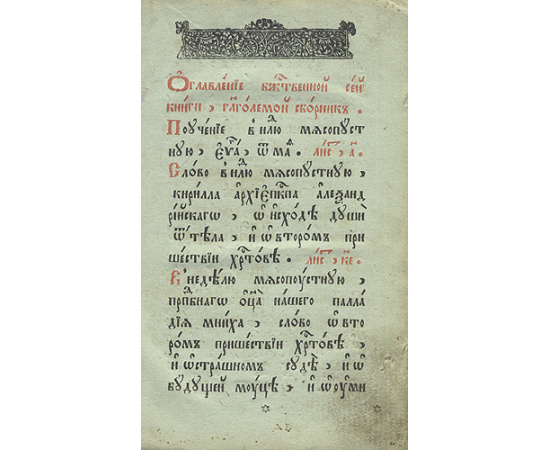 Ѻглавле́нїе бж҃твенной се́й
кни́ги , гл҃го́лемой сбо́рникъ .
Поуче́нїе в нлю мѧсопуст
ную , є҆ѵⷢ҇а , ѿ маⷴ҇ . ли́сⷮ , а҃ .
Сло́во в нлю мѧсопу́стную ,
кири́лла а҆рхїеп҃кпа а҆леѯанд
рі́йскагѡ , ѡ҆ и҆схо́дѣ души̂
ѿ тѣ́ла , и҆ ѡ҆ второ́мъ при
ше́ствїи хрⷭ҇то́вѣ . ли́сⷮ , к҃е .
В недѣ́лю мѧсопу́стную ,
прпⷣбнагѡ ѻ҆ц҃а̀ на́шего палла
дїѧ мни́ха , сло́во ѡ҆ вто
ро́мъ прише́ствїи хрⷭ҇то́вѣ ,
и҆ ѡ҆ стра́шномъ судѣ̀ , и҆ ѡ҆
бу́дущей му́цѣ , и҆ ѡ҆ у҆ми